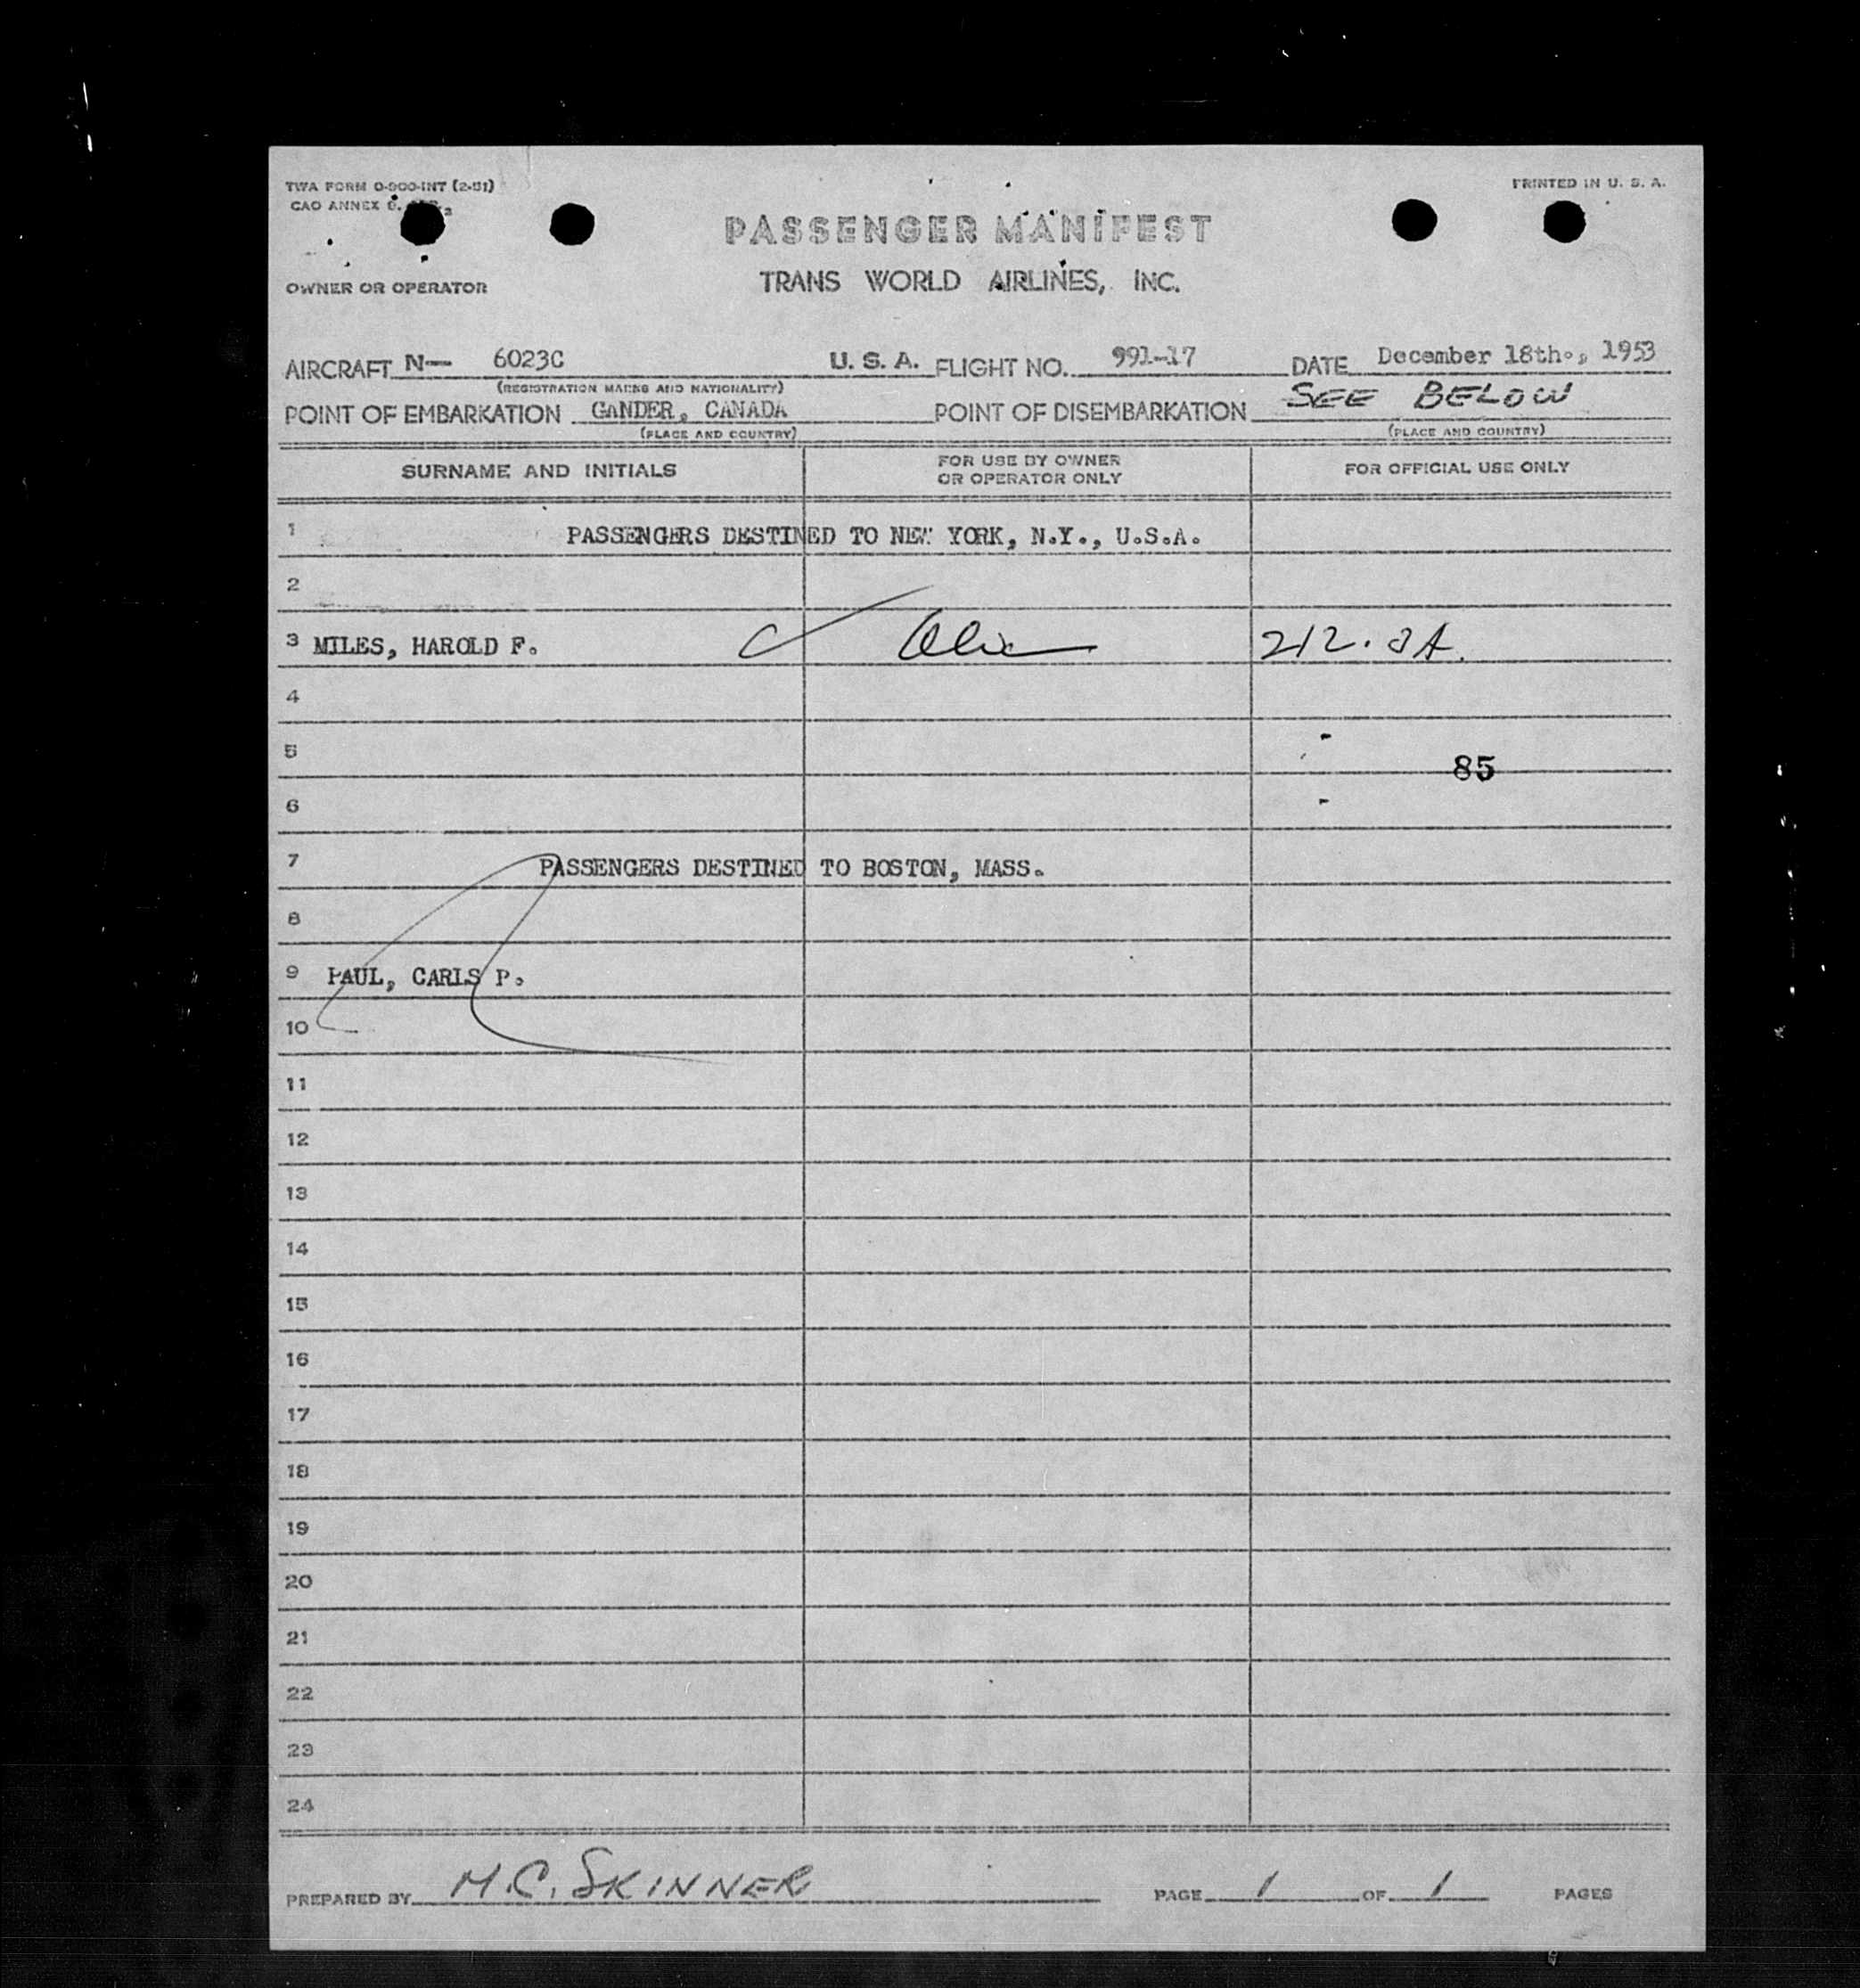 TWA FORM O-900-INT (2-51)
PRINTED IN U. S. A.
CAO ANNEX 9.
PASSENGER MANIFEST
OWNER OR OPERATOR
TRANS WORLD AIRLINES, INC.
AIRCRAFT N— 6023C U. S. A. FLIGHT NO. 991-17 DATE December 18th., 1953
(REGISTRATION MARKS AND NATIONALITY)
POINT OF EMBARKATION GANDER, CANADA POINT OF DISEMBARKATION SEE BELOW
(PLACE AND COUNTRY) (PLACE AND COUNTRY)
SURNAME AND INITIALS FOR USE BY OWNER OR OPERATOR ONLY FOR OFFICIAL USE ONLY
1 PASSENGERS DESTINED TO NEW YORK, N.Y., U.S.A.
2
3 MILES, HAROLD F. 212.
4
5
85
6
7 PASSENGERS DESTINED TO BOSTON, MASS.
8
9 PAUL, CARLS P.
10
11
12
13
14
15
16
17
18
19
20
21
22
23
24
PREPARED BY M.C. SKINNER PAGE 1 OF 1 PAGES